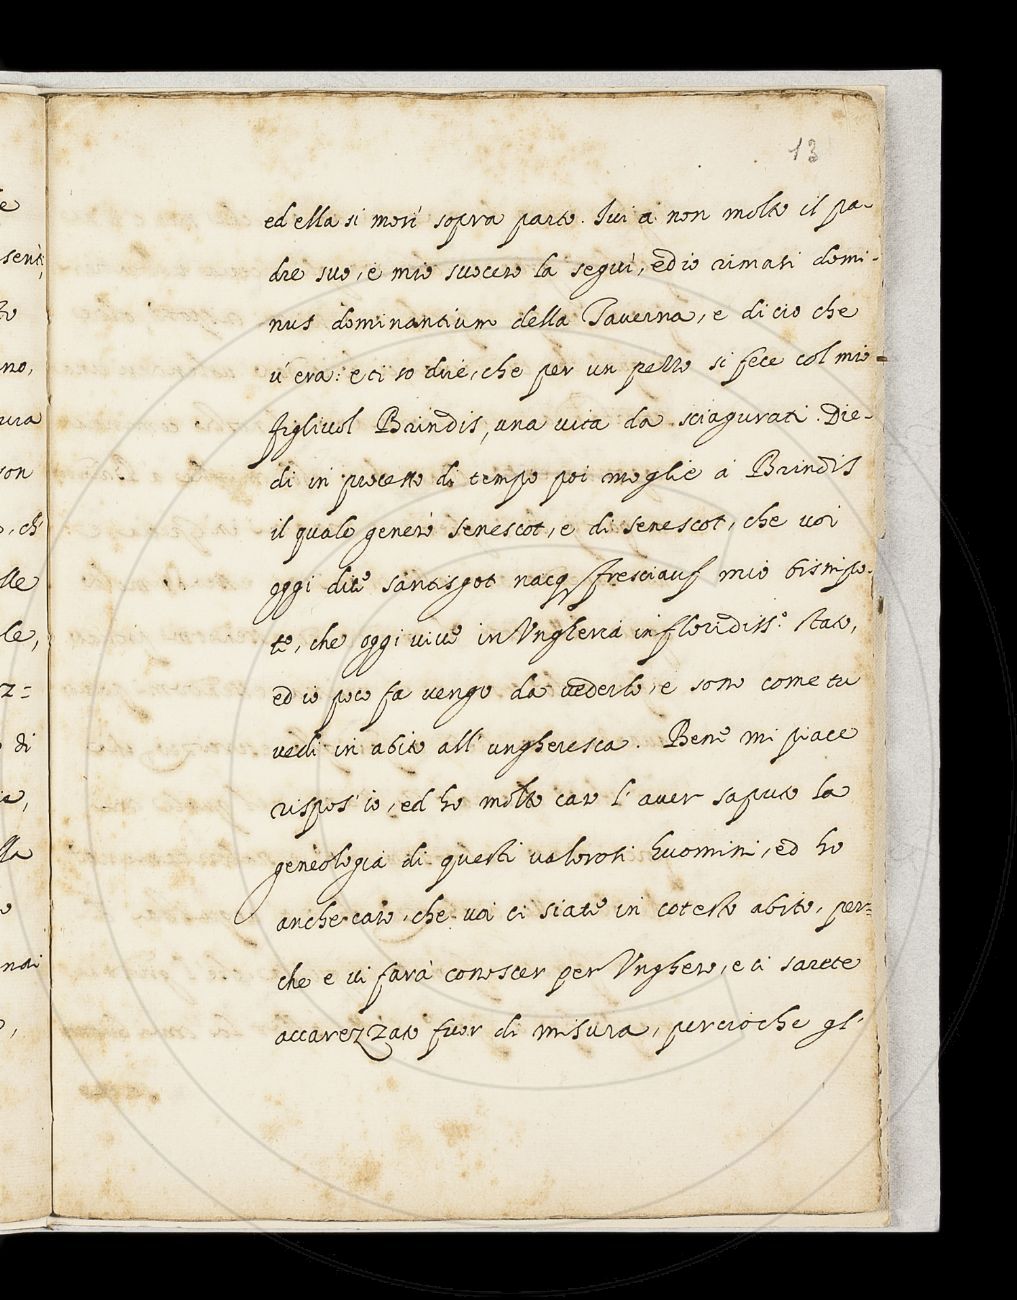 13
ed ella si morì sopra parto. Ivi à non molto il pa-
dre suo, e mio suocero la seguì, ed io rimasi domi-
nus dominantium della Taverna, e di cio che
v'era: e ti so dire, che per un pezzo si fece col mio
figliuol Brindis, una vita da sciagurati. Die-
di in processo di tempo poi moglie à Brindis
il quale generò Senescot, e di Senescot, che voi
oggi dite Santisgot nacq sfresciauf mio bisnipo-
te, che oggi vive in Ungheria in floridiss.o stato,
ed io poco fa vengo da vederlo, e sono come tu
vedi in abito all'ungheresca. Bene mi piace
rispos' io, ed ho molto caro l'aver saputo la
geneologia di questi valorosi huomini, ed ho
anche caro, che voi ci siate in cotesto abito, per-
che e vi farà conoscer per Unghero, e ci sarete
accarezzato fuor di misura, percioche gl'